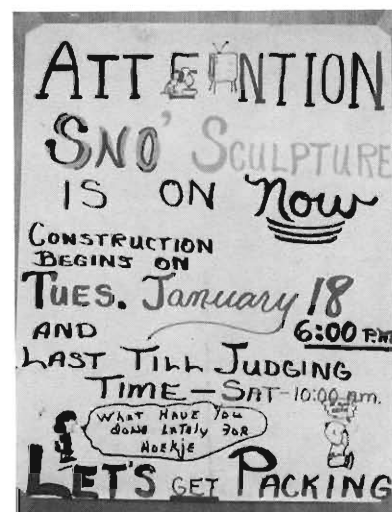 ATTENTION
SNO' SCULPTURE
IS ON NOW
CONSTRUCTION
BEGINS ON
TUES. January 18
6:00 P.M.
AND
LAST TILL JUDGING
TIME – SAT – 10:00 a.m.
WHAT HAVE YOU
DONE LATELY FOR
HOEKJE
LET'S GET PACKING